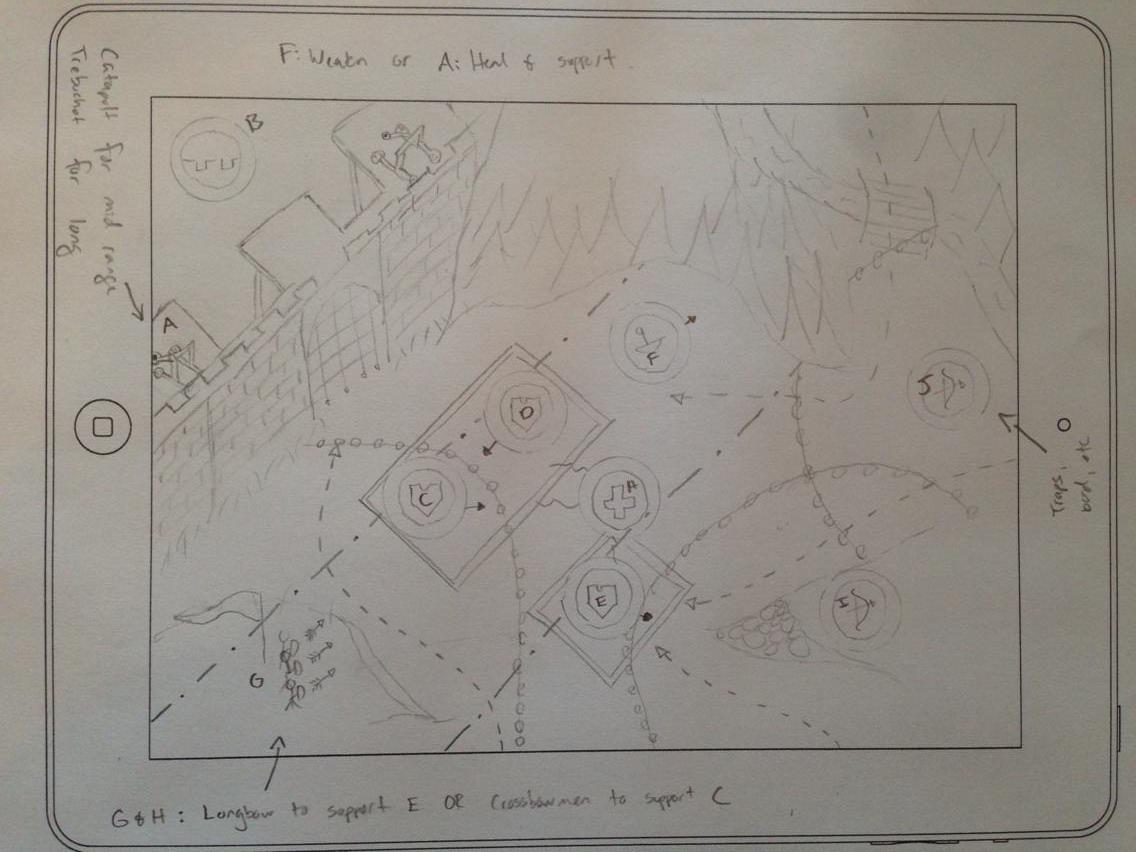 F: Weaken or A: Heal & support.
Catapult for mid range
Trebuchet for long
B
A
F
D
C
A
E
G
J
H
Traps,
G & H: Longbow to support E OR Crossbowmen to support C